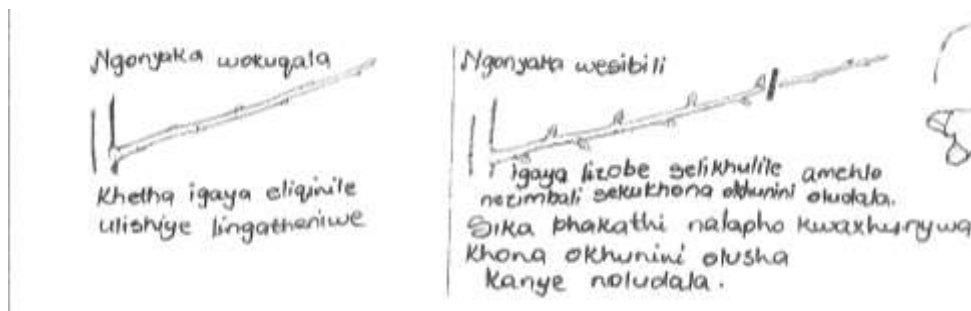 Ngonyaka wokuqala
Khetha igaya eliqinile
ulishiye lingatheniwe
Ngonyaka wesibili
igaya lizobe selikhulile amehlo
nezimbali sekukhona okhunini oludala.
Sika phakathi nalapho kwaxhunywa
khona okhunini olusha
kanye noludala.